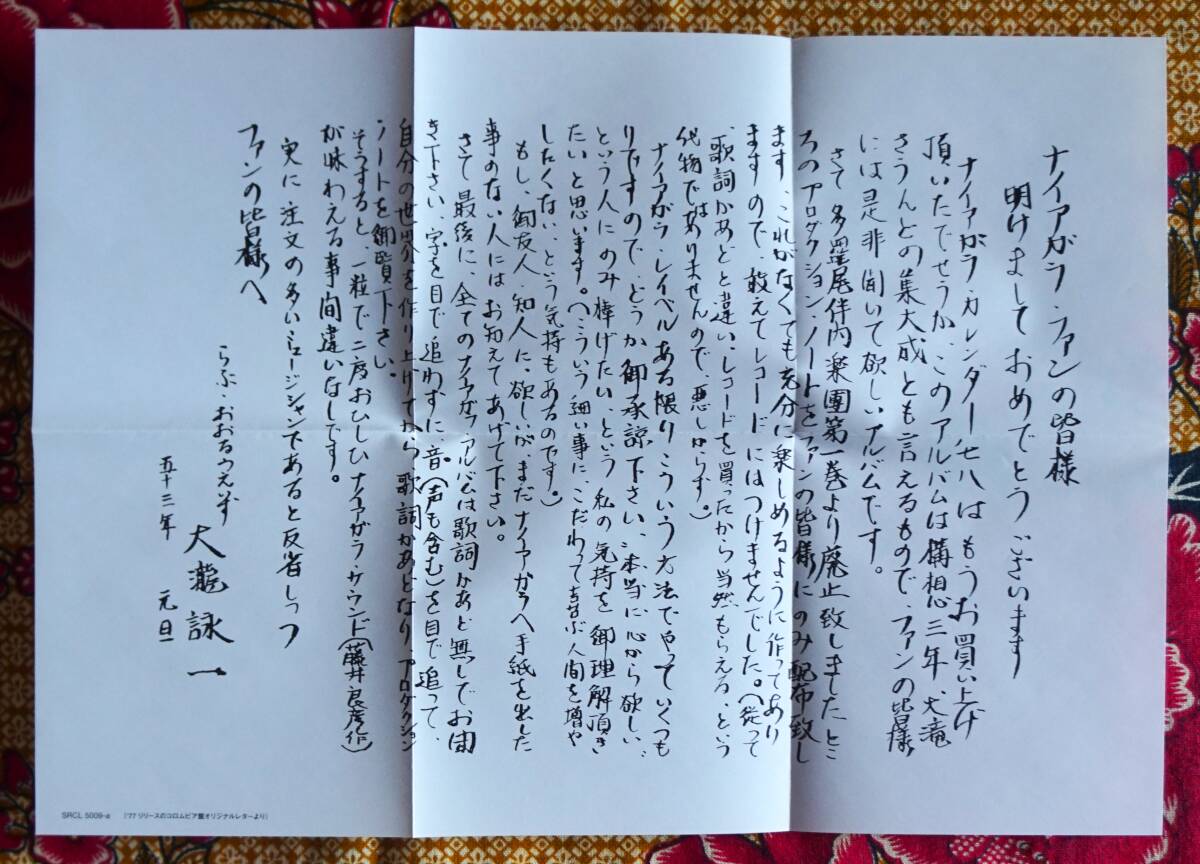 ナイアガラ・ファンの皆様
明けまして おめでとう ございます
ナイアガラ・カレンダー七八は もうお買い上げ
頂いたでせうか、このアルバムは構想三年、大滝
さうんどの集大成とも言えるもので、ファンの皆様
には是非聞いて欲しいアルバムです。
さて 多羅尾伴内楽團第一巻より廃止致しましたとこ
ろのプロダクション・ノートをファンの皆様にのみ配布致し
ます、これがなくても充分に楽しめるように作ってあり
ますので、敢えてレコードにはつけませんでした。(従って
、歌詞かあどと違い、レコードを買ったから当然もらえる、という
代物ではありませんので、悪しからず。)
ナイアガラ・レイベルある限りこういう方法でやっていくつも
りですので、どうか御承諒下さい、"本当に心から欲しい、"
という人にのみ棒げたい、という 私の気持を御理解頂き
たいと思います。(こういう細い事に、こだわって喜ぶ人間を増や
したくない、という気持もあるのです。)
もし、御友人、知人に、欲しいが、まだ ナイアガラへ手紙を出した
事のない人には お知えてあげて下さい。
さて 最後に、全てのナイアガラ・アルバムは歌詞かあど無しでお聞
き下さい、字を目で追わずに、音(声も含む)を目で追って、
自分の世界を作り上げてから、歌詞かあどなり、プロダクション
ノートを御覧下さい。
そうすると、一粒で二度おひしひ ナイアガラ・サウンド(藤井良彦作)
が味わえる事間違いなしです。
実に注文の多いミュージシャンであると反省しつつ
ファンの皆様へ
らぶ・おおるうえず
大瀧詠一
五十三年 元旦
SRCL 5009-α ['77リリースのコロムビア盤オリジナルレターより]